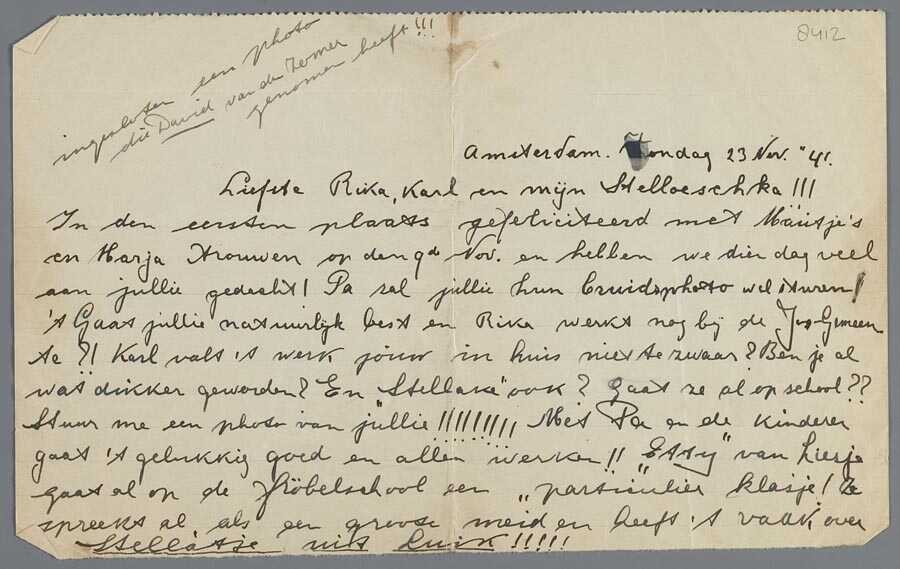 8412
ingesloten een photo
die David van de zomer
genomen heeft!!!
Amsterdam. Zondag 23 Nov. "41.
Liefste Rika, Karl en mijn Stelloeschka!!!
In den eersten plaats gefeliciteerd met Mäutje's
en Harja trouwen op den 9de Nov. en hebben we dien dag veel
aan jullie gedacht! Pa zal jullie hun Bruidsphoto wel sturen!
't Gaat jullie natuurlijk best en Rika werkt nog bij de Jos. Gemeen
te?! Karl valt 't werk jouw in huis niet te zwaar? Ben je al
wat dikker geworden? En "Stellake" ook? gaat ze al op school??
Stuur me een photo van jullie!!!!!!!!! Met Pa en de kinderen
gaat 't gelukkig goed en allen werken!! "Etty" van Liesje
gaat al op de Fröbelschool een "particulier klasje! Ze
spreekt al als een groote meid en heeft 't vaak over
Stellatje uit Luik!!!!!